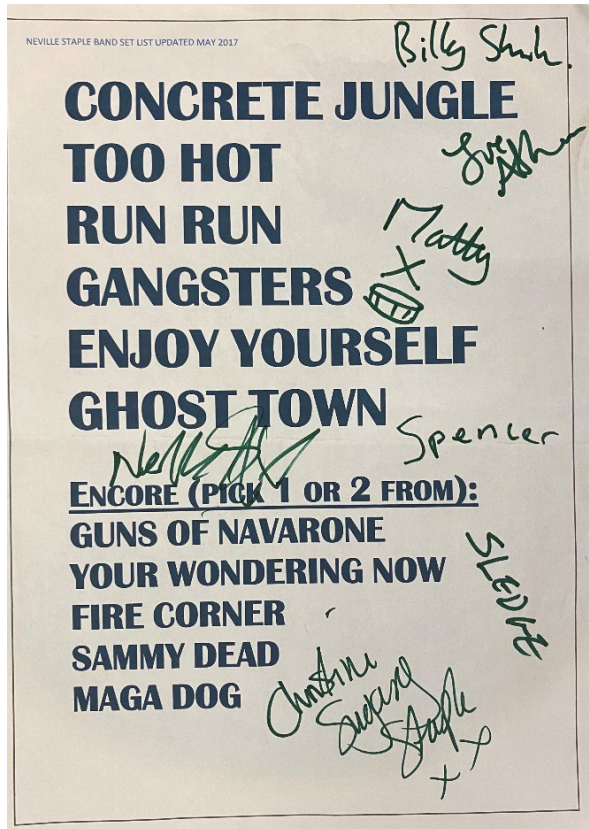 NEVILLE STAPLE BAND SET LIST UPDATED MAY 2017
Billy Shinh.
CONCRETE JUNGLE
TOO HOT
RUN RUN
Matty
X
GANGSTERS
ENJOY YOURSELF
GHOST TOWN
Spencer
ENCORE (PICK 1 OR 2 FROM):
GUNS OF NAVARONE
YOUR WONDERING NOW
SLEDGE
FIRE CORNER
SAMMY DEAD
MAGA DOG
Christine
Sugary
Staple
x x